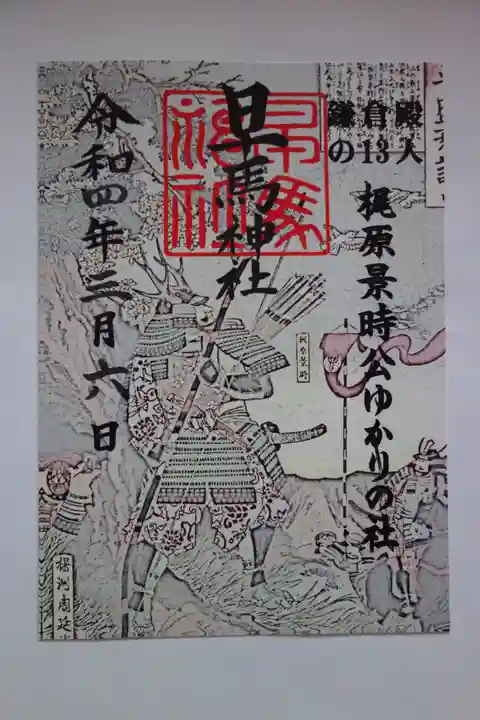 鎌倉殿
の13人
梶原景時公ゆかりの社
早馬神社
早馬
神社
令和四年三月六日
梶原景時
楊洲周延